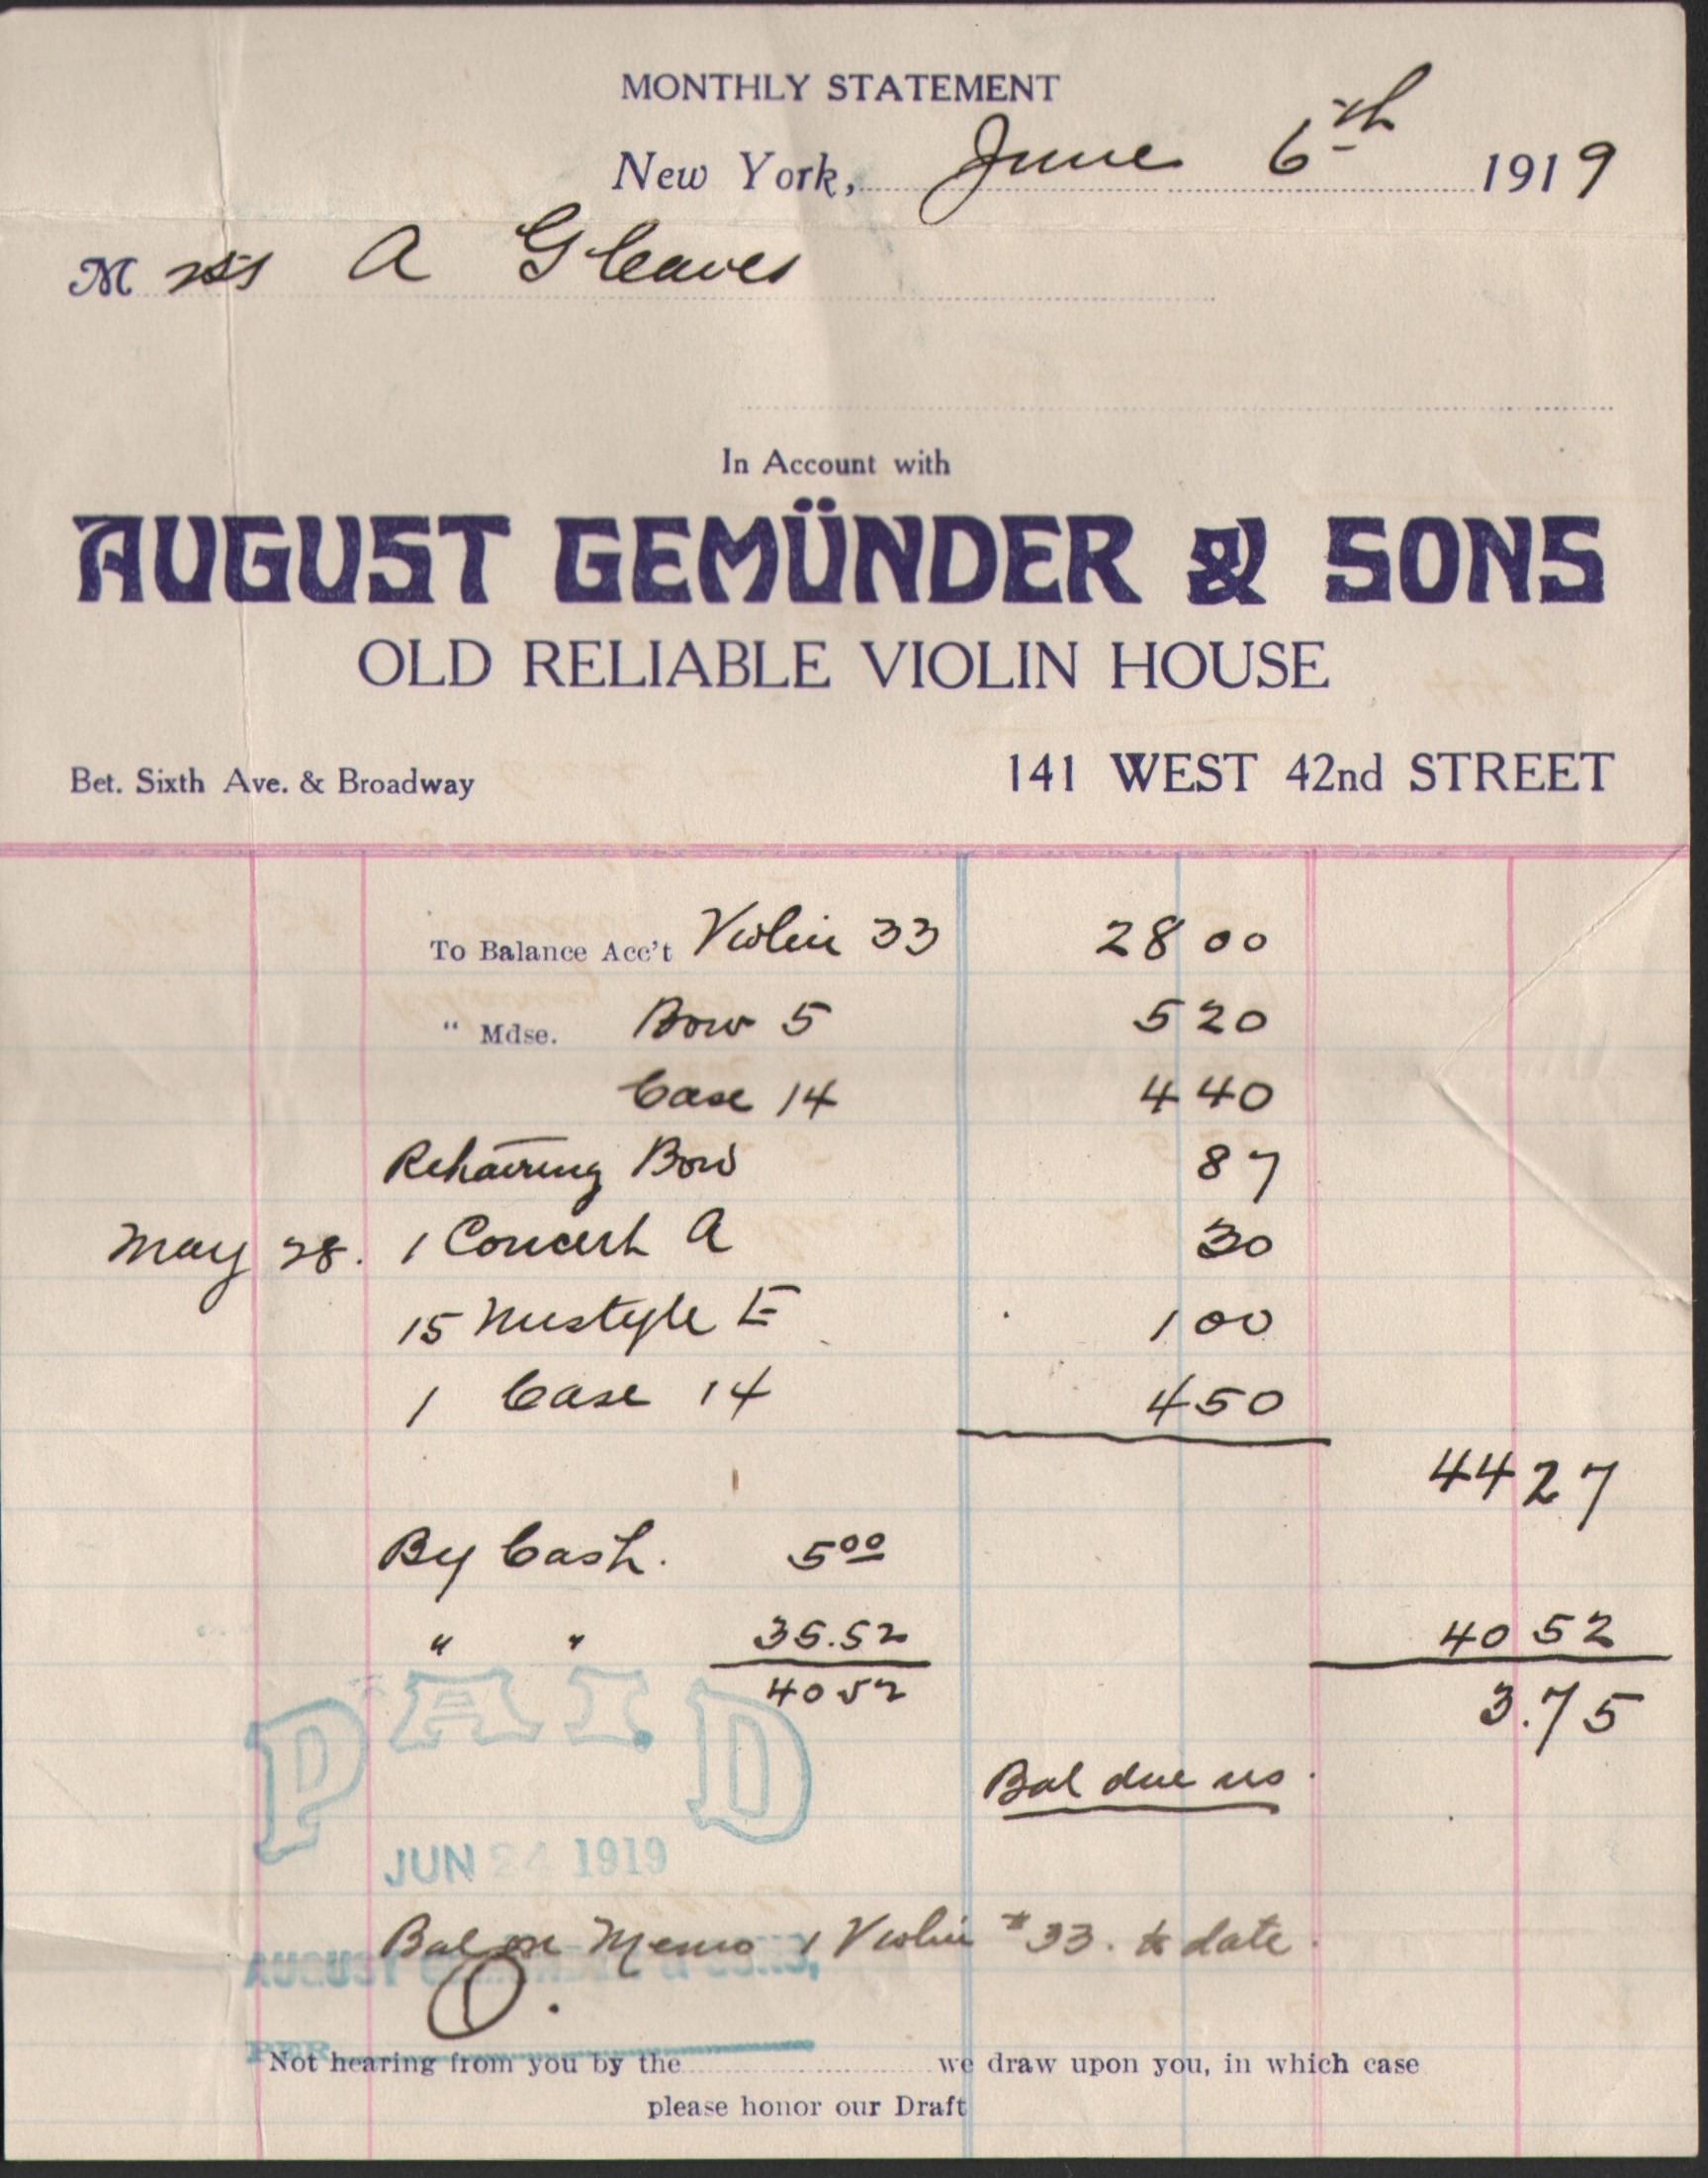 MONTHLY STATEMENT
New York, June 6th 1919
M rss A Gleaves
In Account with
AUGUST GEMÜNDER & SONS
OLD RELIABLE VIOLIN HOUSE
Bet. Sixth Ave. & Broadway 141 WEST 42nd STREET
To Balance Acc't Violin 33 28 00
" Mdse. Bow 5 5 20
Case 14 4 40
Rehairing Bow 87
May 28. 1 Concert A 30
15 Nustyle E 1 00
1 Case 14 4 50
44 27
By Cash. 5 00
" " 35.52 40 52
40 52 3.75
Bal due us.
PAID
JUN 24 1919
Bal on Memo 1 Violin #33. to date.
AUGUST GEMÜNDER & SONS,
O.
PER
Not hearing from you by the we draw upon you, in which case
please honor our Draft